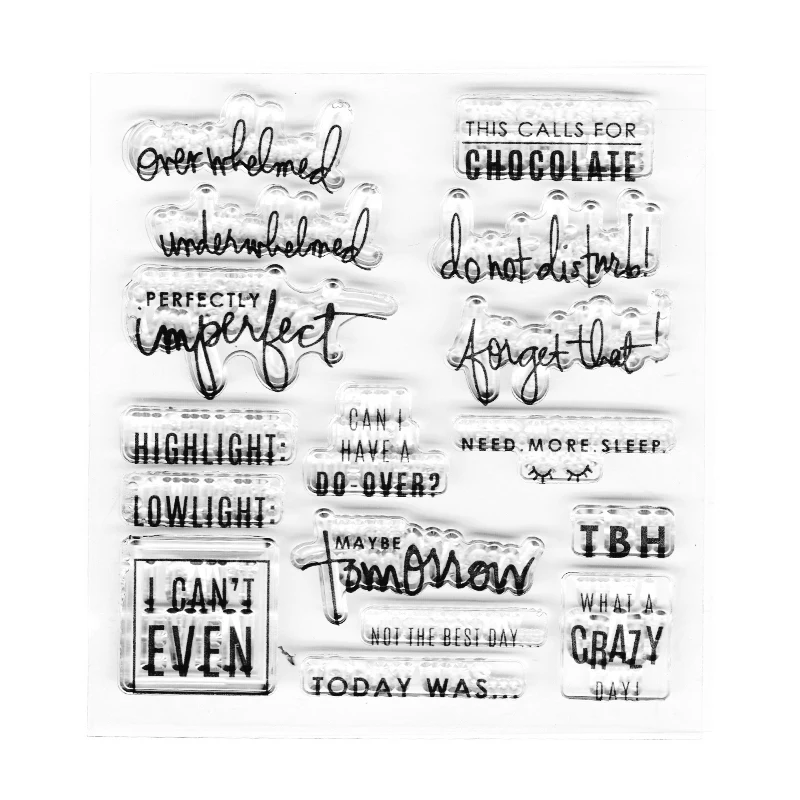 overwhelmed
THIS CALLS FOR
CHOCOLATE
underwhelmed
do not disturb!
PERFECTLY
imperfect
forget that!
HIGHLIGHT:
CAN I
HAVE A
DO-OVER?
NEED.MORE.SLEEP.
LOWLIGHT:
MAYBE
tomorrow
TBH
I CAN'T
EVEN
WHAT A
CRAZY
DAY!
NOT THE BEST DAY...
TODAY WAS...